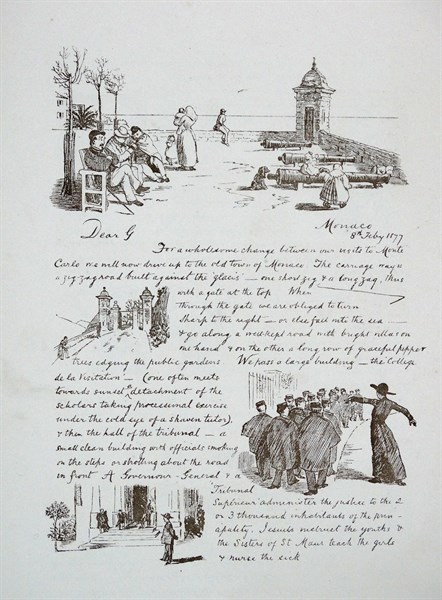 Dear G
Monaco
8th Feby 1877
For a wholesome change between our visits to Monte
Carlo we will now drive up to the old town of Monaco The carriage way is
a zig zag road built against the 'glacis' — one short zig & a long zag, thus
with a gate at the top When
through the gate we are obliged to turn
sharp to the right — or else fall into the sea —
& go along a well kept road with bright villas on
one hand & on the other a long row of graceful pepper
trees edging the public gardens We pass a large building — the College
de la Visitation — (one often meets
towards sunset, a detachment of the
scholars taking processional exercise
under the cold eye of a shaven tutor).
& then the hall of the tribunal — a
small clean building with officials smoking
on the steps or strolling about the road
in front A Governor-General & a
Tribunal
Supérieur administer the justice to the 2
or 3 thousand inhabitants of the prin-
apality. Jesuits instruct the youths &
the Sisters of St Maur teach the girls
& nurse the sick